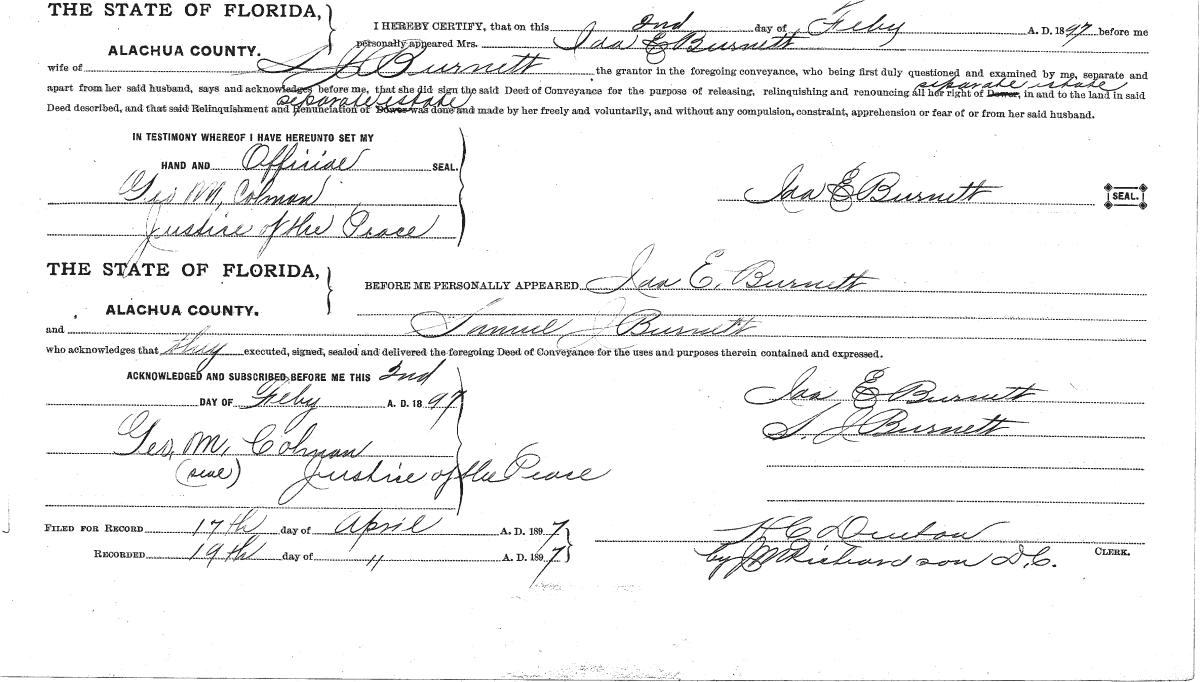 THE STATE OF FLORIDA,
ALACHUA COUNTY.
I HEREBY CERTIFY, that on this 2nd day of Feby A. D. 1897 before me
personally appeared Mrs. Ida E Burnett
wife of S J Burnett the grantor in the foregoing conveyance, who being first duly questioned and examined by me, separate and
separate estate
apart from her said husband, says and acknowledges before me, that she did sign the said Deed of Conveyance for the purpose of releasing, relinquishing and renouncing all her right of Dower, in and to the land in said
separate estate
Deed described, and that said Relinquishment and Renunciation of Dower was done and made by her freely and voluntarily, and without any compulsion, constraint, apprehension or fear of or from her said husband.
IN TESTIMONY WHEREOF I HAVE HEREUNTO SET MY
HAND AND Official SEAL.
Geo M, Colman
Justice of the Peace
Ida E Burnett SEAL.
THE STATE OF FLORIDA,
ALACHUA COUNTY.
BEFORE ME PERSONALLY APPEARED Ida E. Burnett
and Samuel J Burnett
who acknowledges that they executed, signed, sealed and delivered the foregoing Deed of Conveyance for the uses and purposes therein contained and expressed.
ACKNOWLEDGED AND SUBSCRIBED BEFORE ME THIS 2nd
DAY OF Feby A. D. 1897
Geo, M, Colman
(seal) Justice of the Peace
Ida E Burnett
S. J Burnett
FILED FOR RECORD 17th day of April A. D. 1897
RECORDED 19th day of " A. D. 1897
H C Denton CLERK.
by J M Richardson D. C.